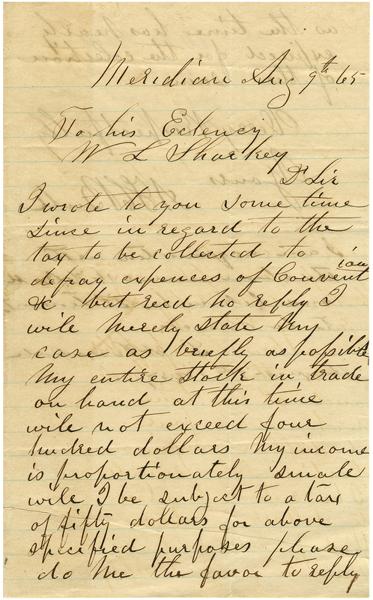 Meridian Aug 9th 65
To his Eclency
W L Sharkey
Dr Sir
I wrote to you some time
since in regard to the
tax to be collected to
defray expences of Convention
&c but recd no reply I
wile merely state my
case as briefly as possible
My entire stock in trade
on hand at this time
wile not exceed four
hundred dollars my income
is proportionately smale
wile I be subject to a tax
of fifty dollars for above
specified purposes please
do me the favor to reply